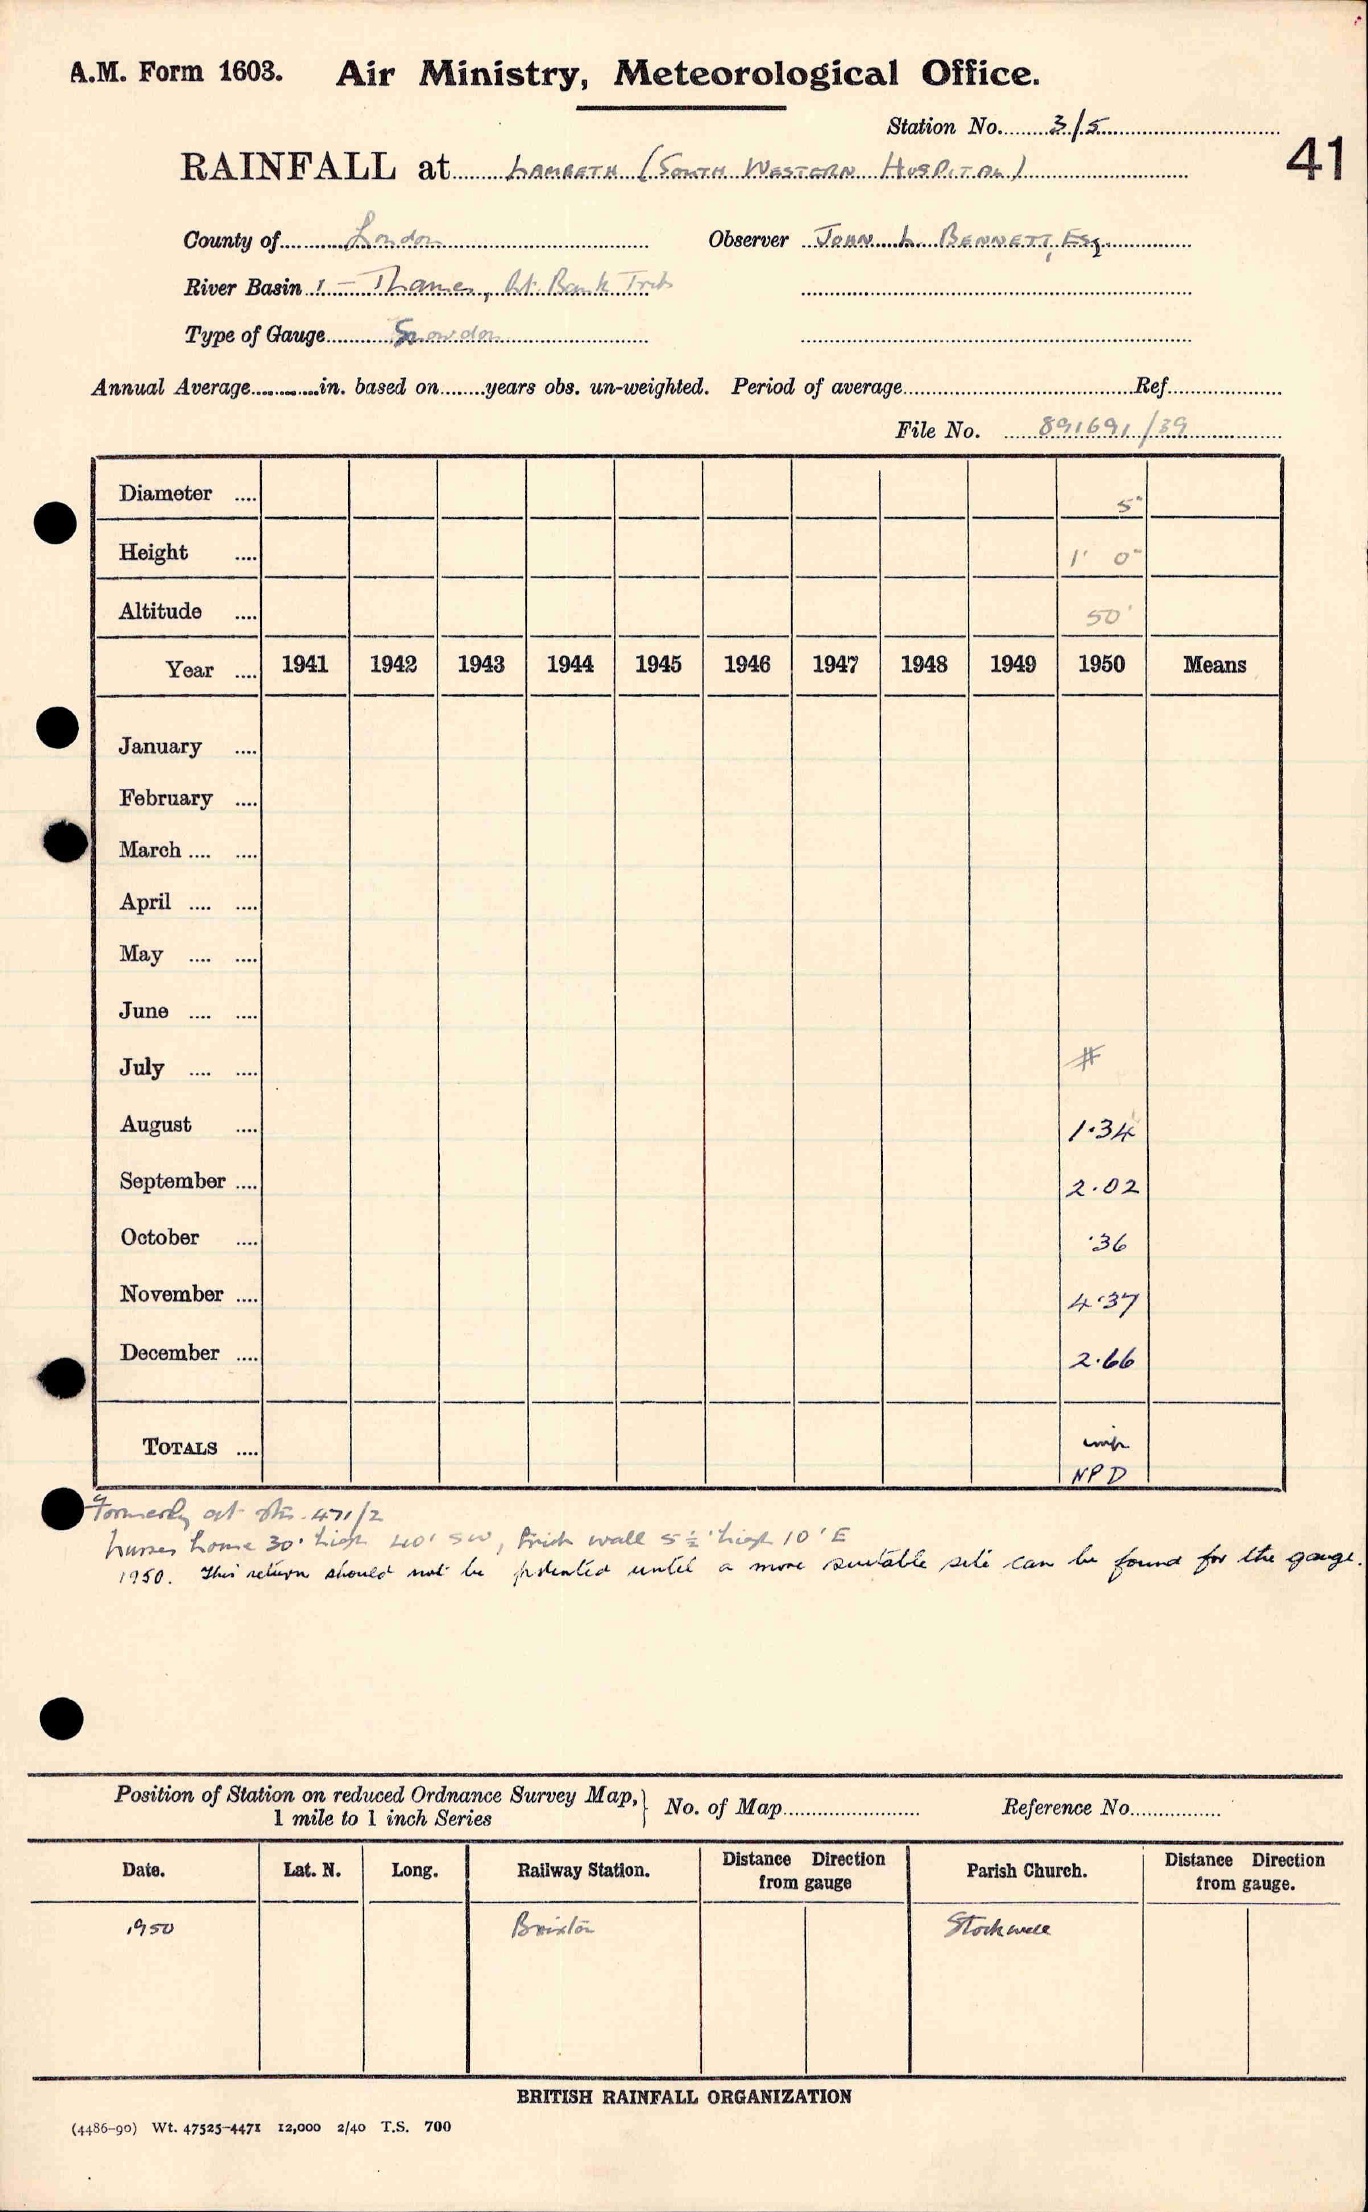 A.M. Form 1603. Air Ministry, Meteorological Office.
Station No. 3/5
41
RAINFALL at LAMBETH (SOUTH WESTERN HOSPITAL)
County of London Observer JOHN L. BENNETT, Esq.
River Basin 1 – Thames, Rt. Bank Tribs
Type of Gauge Snowdon
Annual Average in. based on years obs. un-weighted. Period of average Ref
File No. 891691/39
Diameter 5"
Height 1' 0"
Altitude 50'
Year 1941 1942 1943 1944 1945 1946 1947 1948 1949 1950 Means
January
February
March
April
May
June
July #
August 1·34
September 2·02
October ·36
November 4·37
December 2·66
TOTALS imp
NPD
Formerly at stn. 471/2
nurses home 30' high 40' SW, brick wall 5½' high 10' E
1950. This return should not be printed until a more suitable site can be found for the gauge.
Position of Station on reduced Ordnance Survey Map, 1 mile to 1 inch Series } No. of Map Reference No.
Date. Lat. N. Long. Railway Station. Distance from gauge Direction Parish Church. Distance from gauge. Direction
1950 Brixton Stockwell
BRITISH RAINFALL ORGANIZATION
(4486-90) Wt. 47525-4471 12,000 2/40 T.S. 700